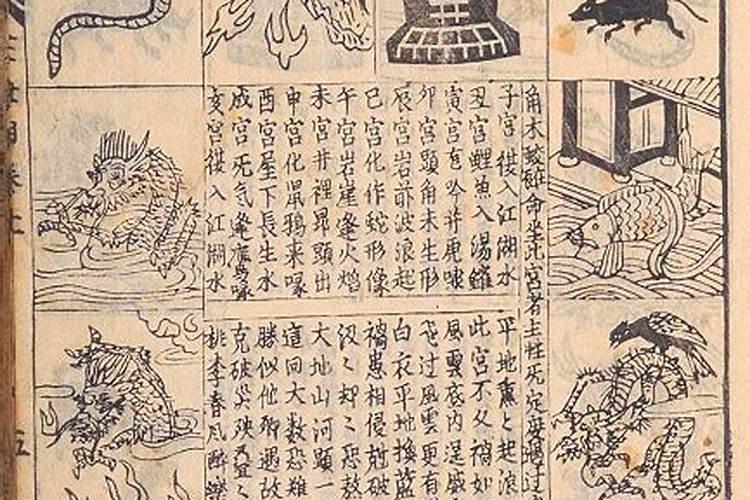 角木蛟雖命坐此宮者主性死定
子宮從入江湖水
丑宮鯉魚入湯鑊
寅宮吟并
卯宮頭角未生形
辰宮岩前波浪起
巳宮化作蛇形像
午宮岩崖逢火焰
未宮井裡昴頭出
申宮化鼠鴉來喙
酉宮屋下長生水
戌宮死气逢鷹喙
亥宮從入江湖水
平地起浪
此宮不久禍如
風雲底内逞威
飛过風雲更有
白衣平地換藍
禍患相侵尅破
却惡
大地山河顯一
這回大数恐難
勝似他遇故
克破災殃
桃李春醉
五